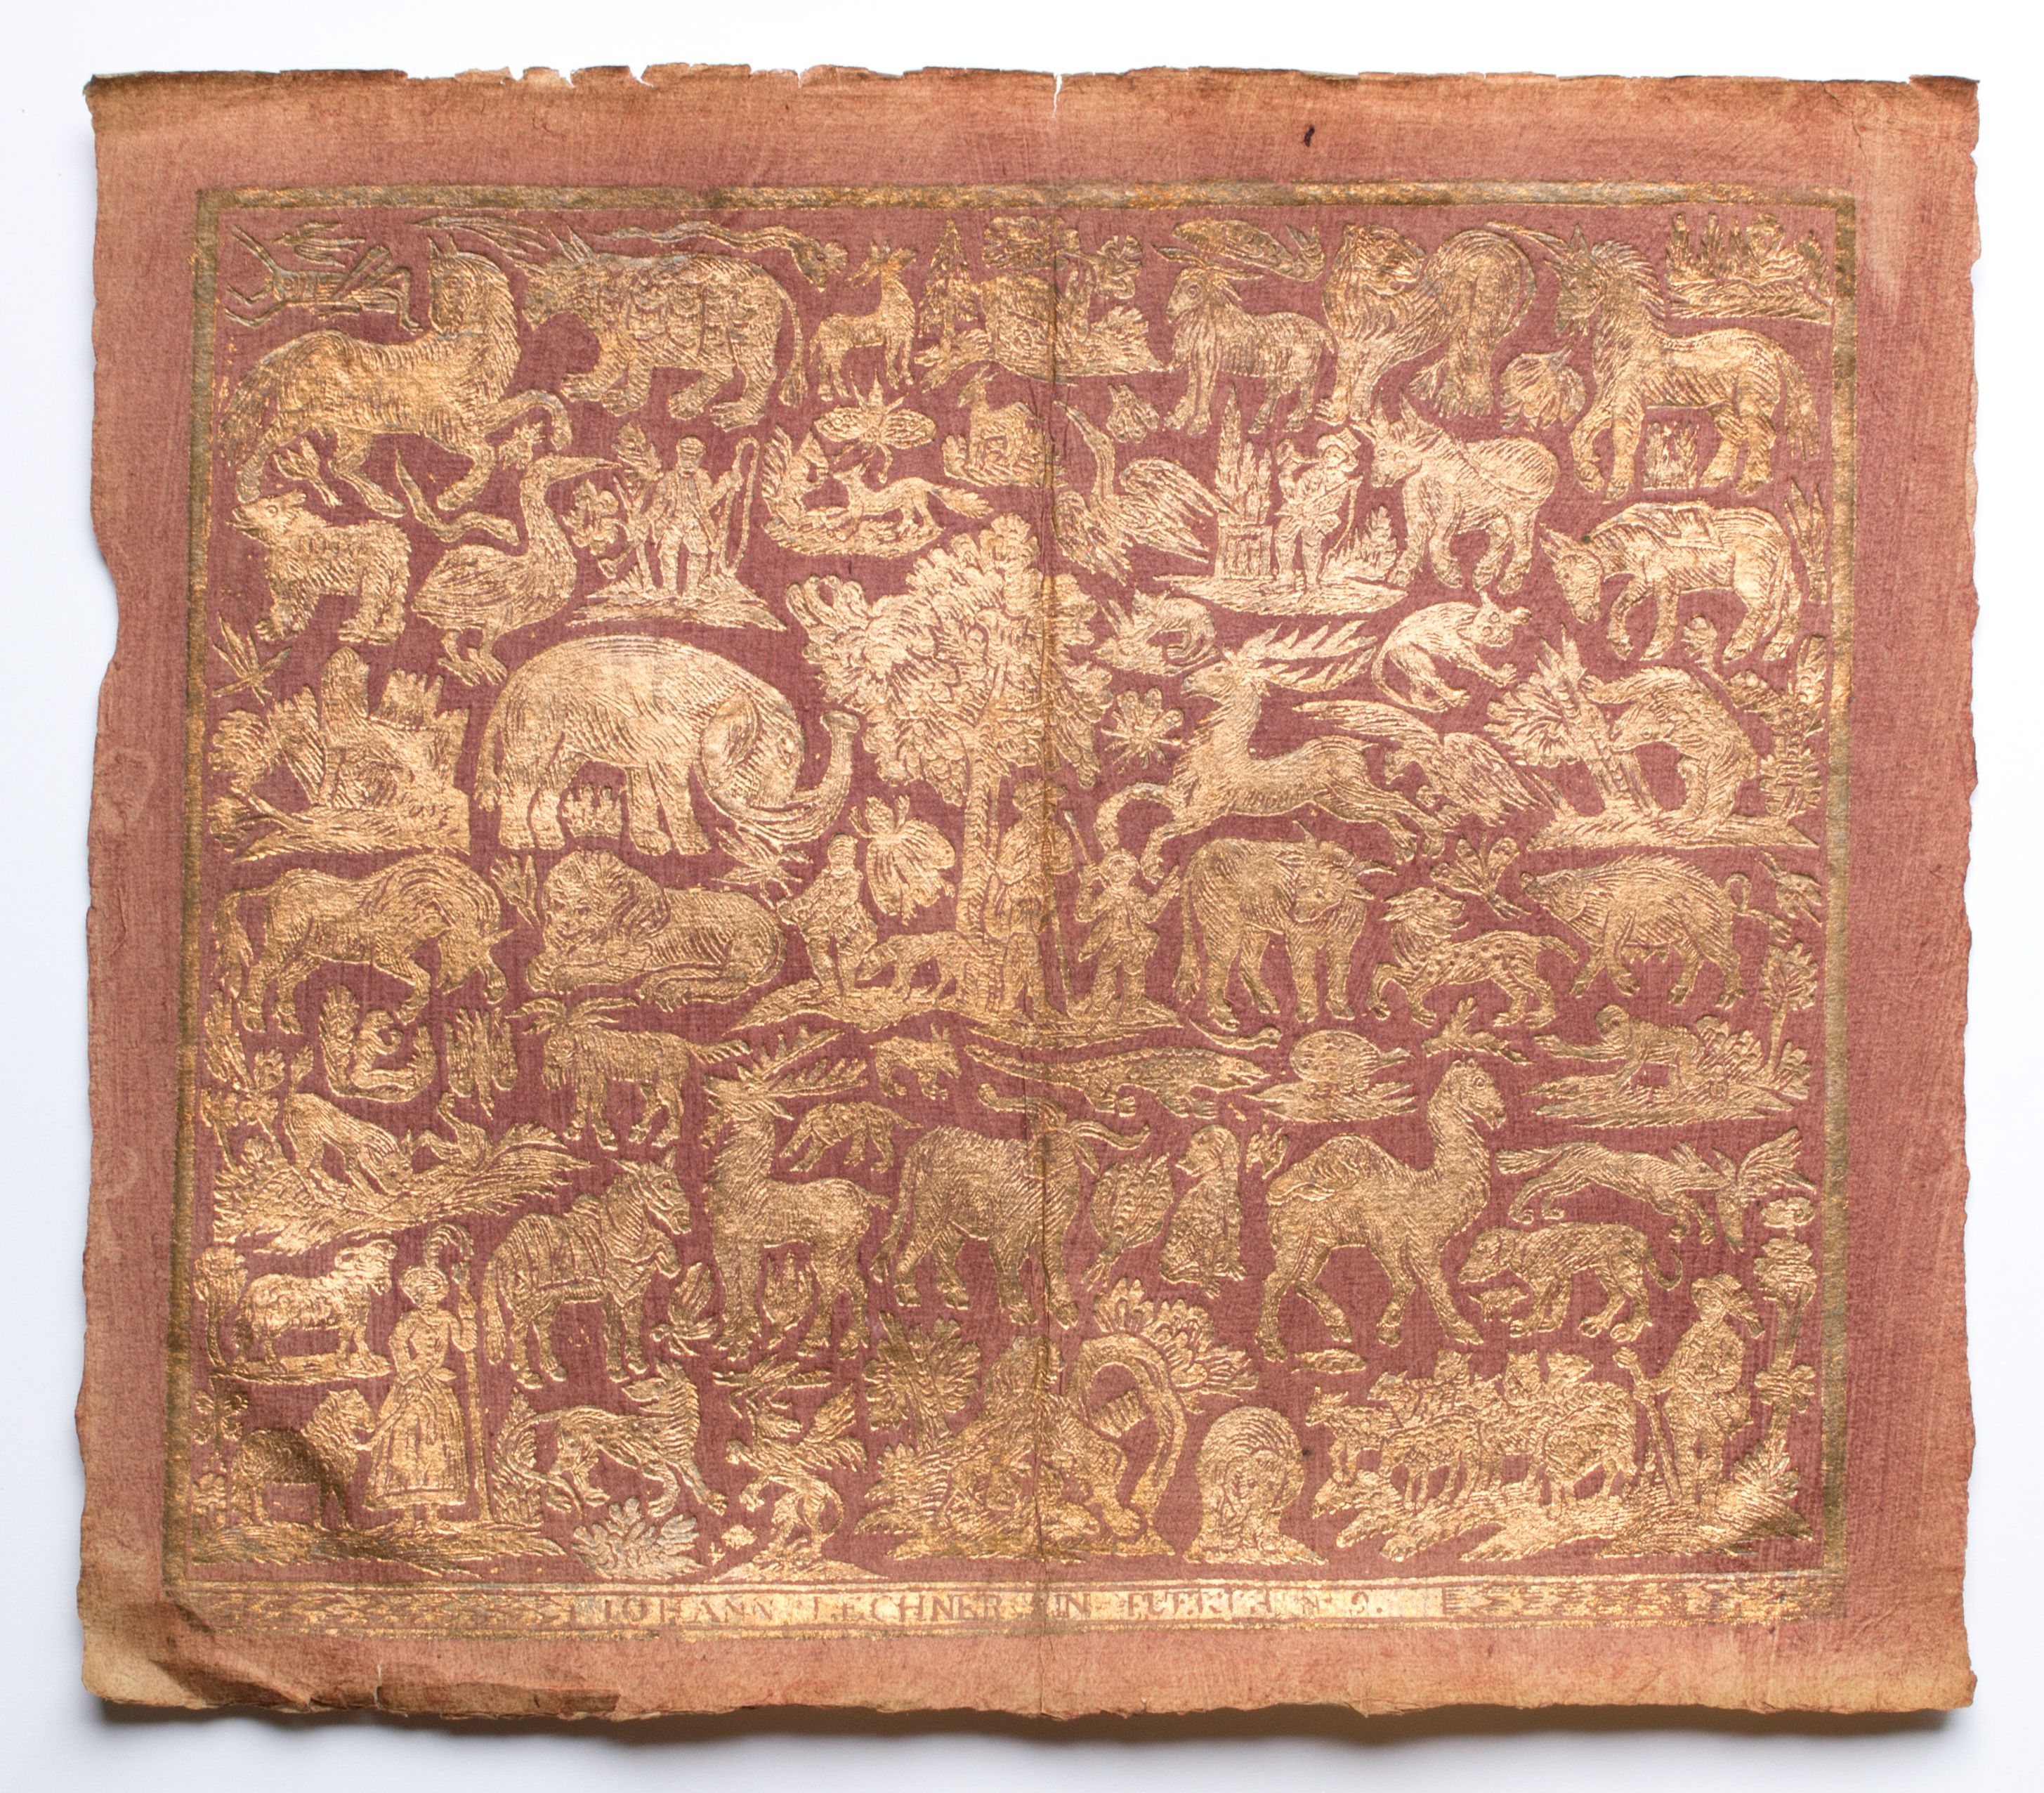 IOHANN LECHNER IN FUERTH N 9.